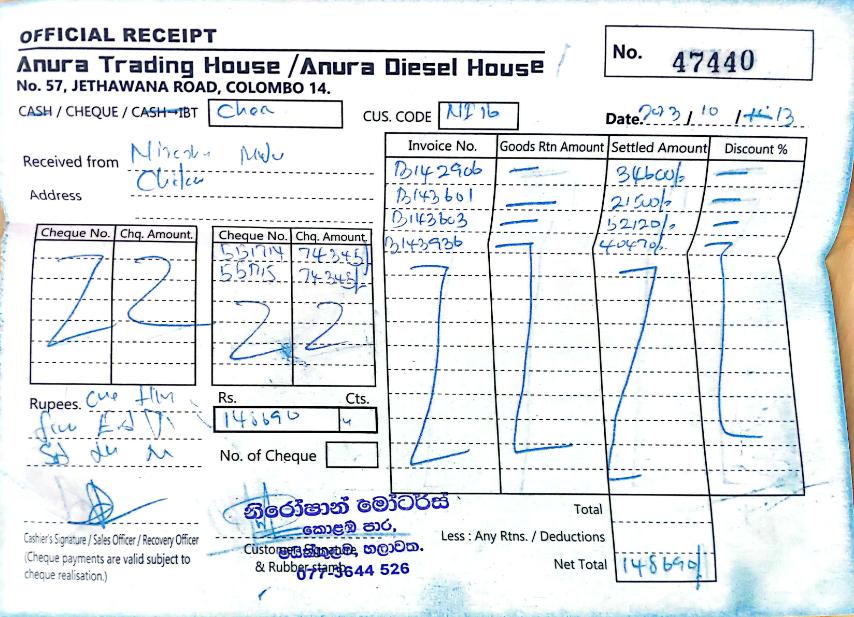 OFFICIAL RECEIPT
Anura Trading House / Anura Diesel House
No. 57, JETHAWANA ROAD, COLOMBO 14.
No. 47440
CASH / CHEQUE / CASH-IBT
CUS. CODE
Date. / 10 / 13
Received from
Address Chilaw
Invoice No. Goods Rtn Amount Settled Amount Discount %
B142906 — 34600/- —
B143601 — 21500/- —
B143603 — 52120/- —
B143936 40470/-
Cheque No. Chq. Amount. Cheque No. Chq. Amount.
74345/-
74345/-
Rupees.
Rs. Cts.
148690
No. of Cheque
Cashier's Signature / Sales Officer / Recovery Officer
(Cheque payments are valid subject to
cheque realisation.)
නිරෝෂාන් මෝටර්ස්
කොළඹ පාර,
හලාවත.
077-3644 526
Customer Signature
& Rubber stamp
Total
Less : Any Rtns. / Deductions
Net Total 148690/-